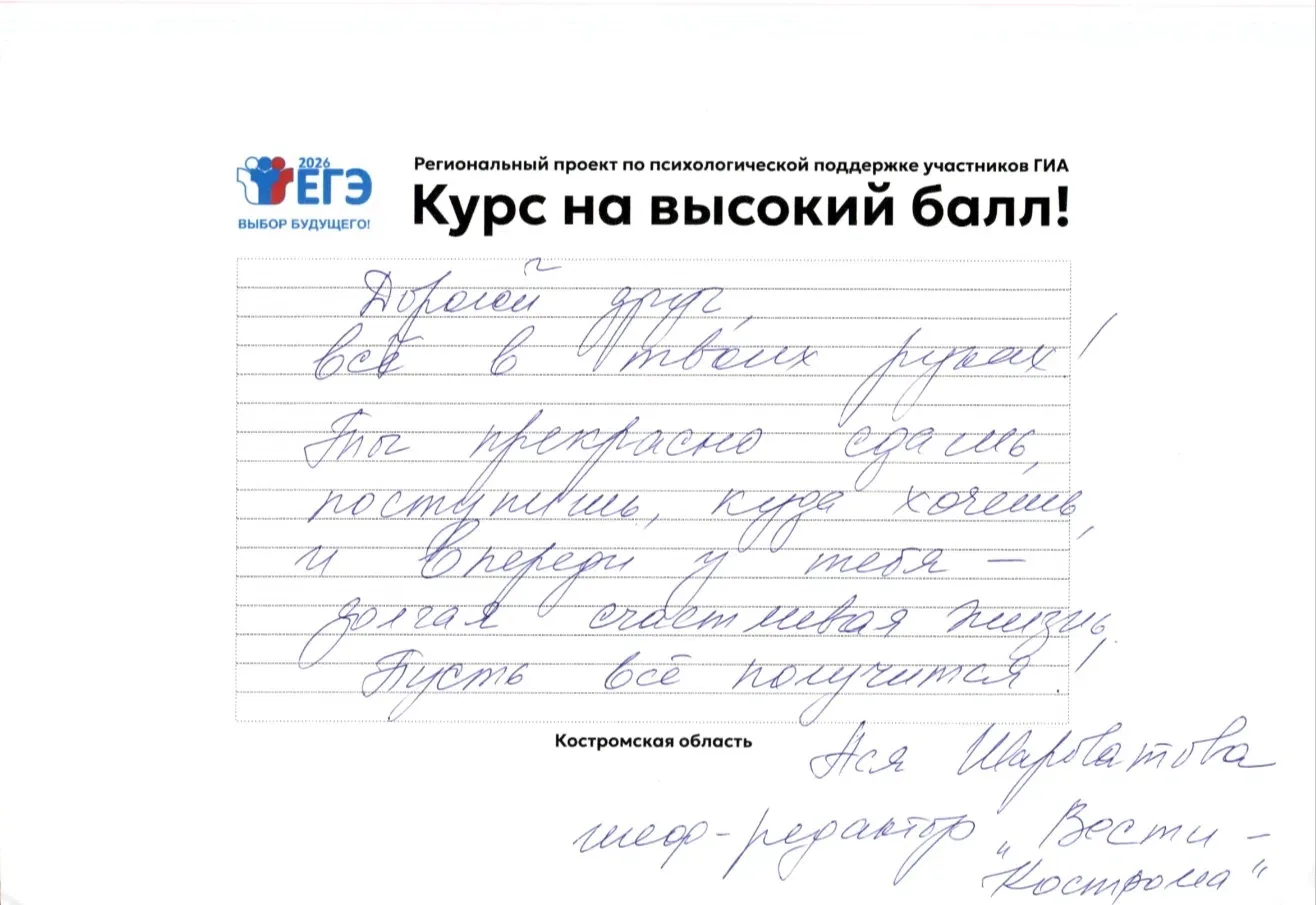 2026
ЕГЭ
ВЫБОР БУДУЩЕГО!
Региональный проект по психологической поддержке участников ГИА
Курс на высокий балл!
Дорогой друг,
всё в твоих руках!
Ты прекрасно сдашь,
поступишь, куда хочешь,
и впереди у тебя –
долгая счастливая жизнь.
Пусть всё получится!
Костромская область
Ася Шарватова
шеф-редактор „Вести –
Кострома“